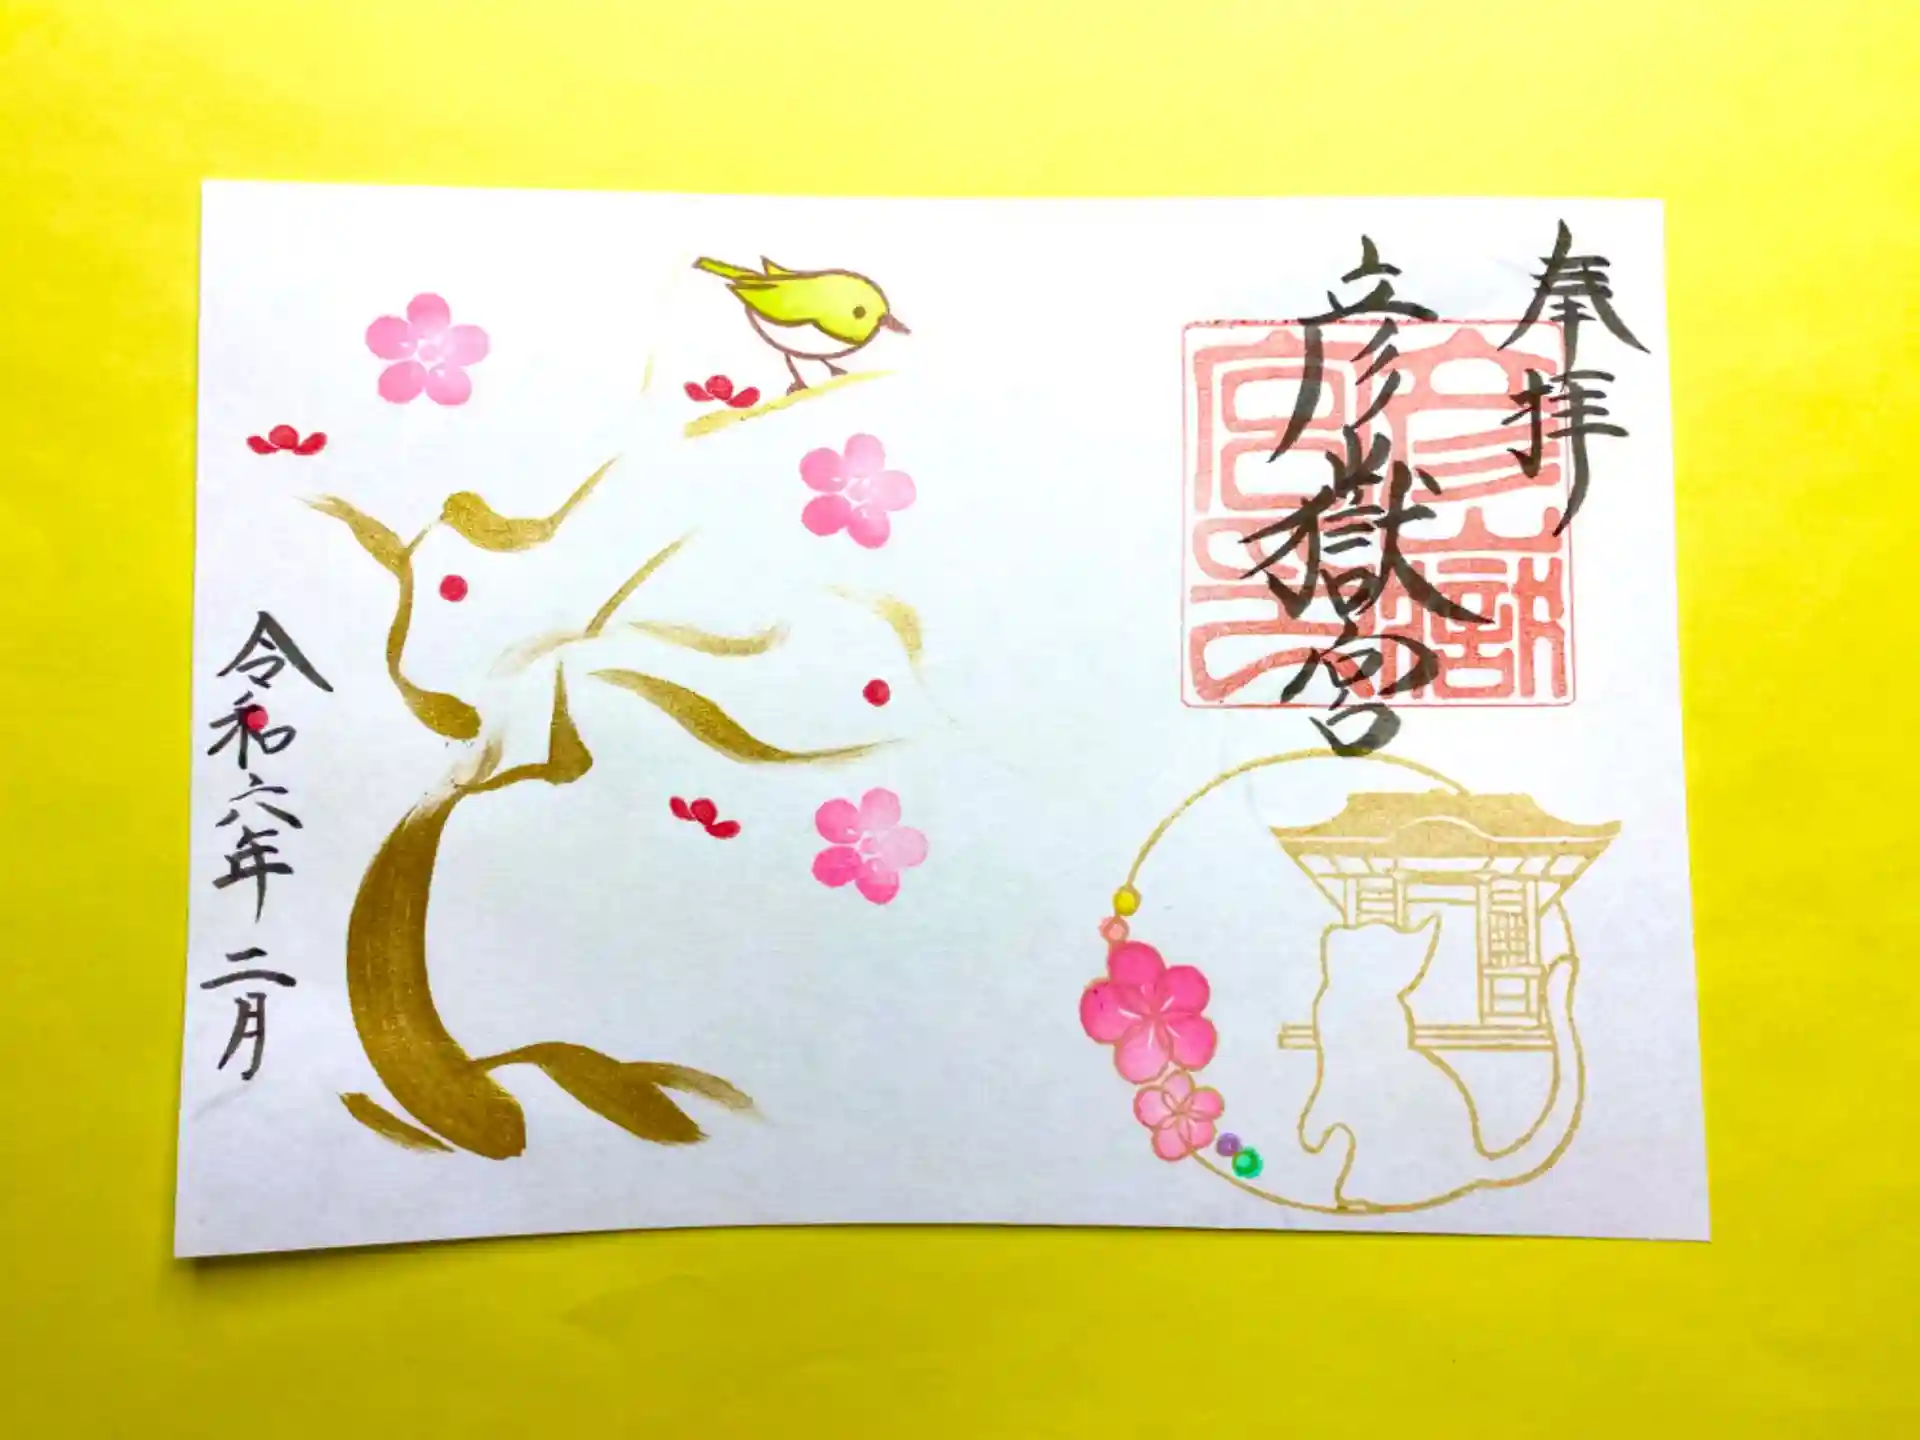 奉拝
彦嶽宮
令和六年 二月